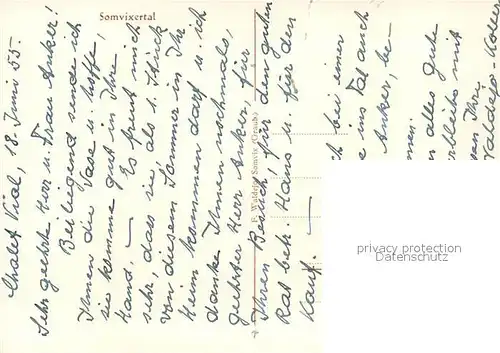 Somvixertal
Chalet Vial, 18. Juni 55.
Sehr geehrte Herr u. Frau Anker!
Beiliegend sende ich
Ihnen die Vase u. hoffe,
sie komme gut in Ihre
Hand. — Es freut mich
sehr, dass sie als 1. Stück
von diesem Sommer in Ihr
Heim kommen darf u. ich
danke Ihnen nochmals,
geehrter Herr Anker, für
Ihren Besuch, für den guten
Rat betr. Haus u. für den
Kauf. —
F. Somvix (Graub.)
bei einer
ins Tal auch
Anker, be-
alles Gute
verbleibe mit
Ihre
privacy protection
Datenschutz